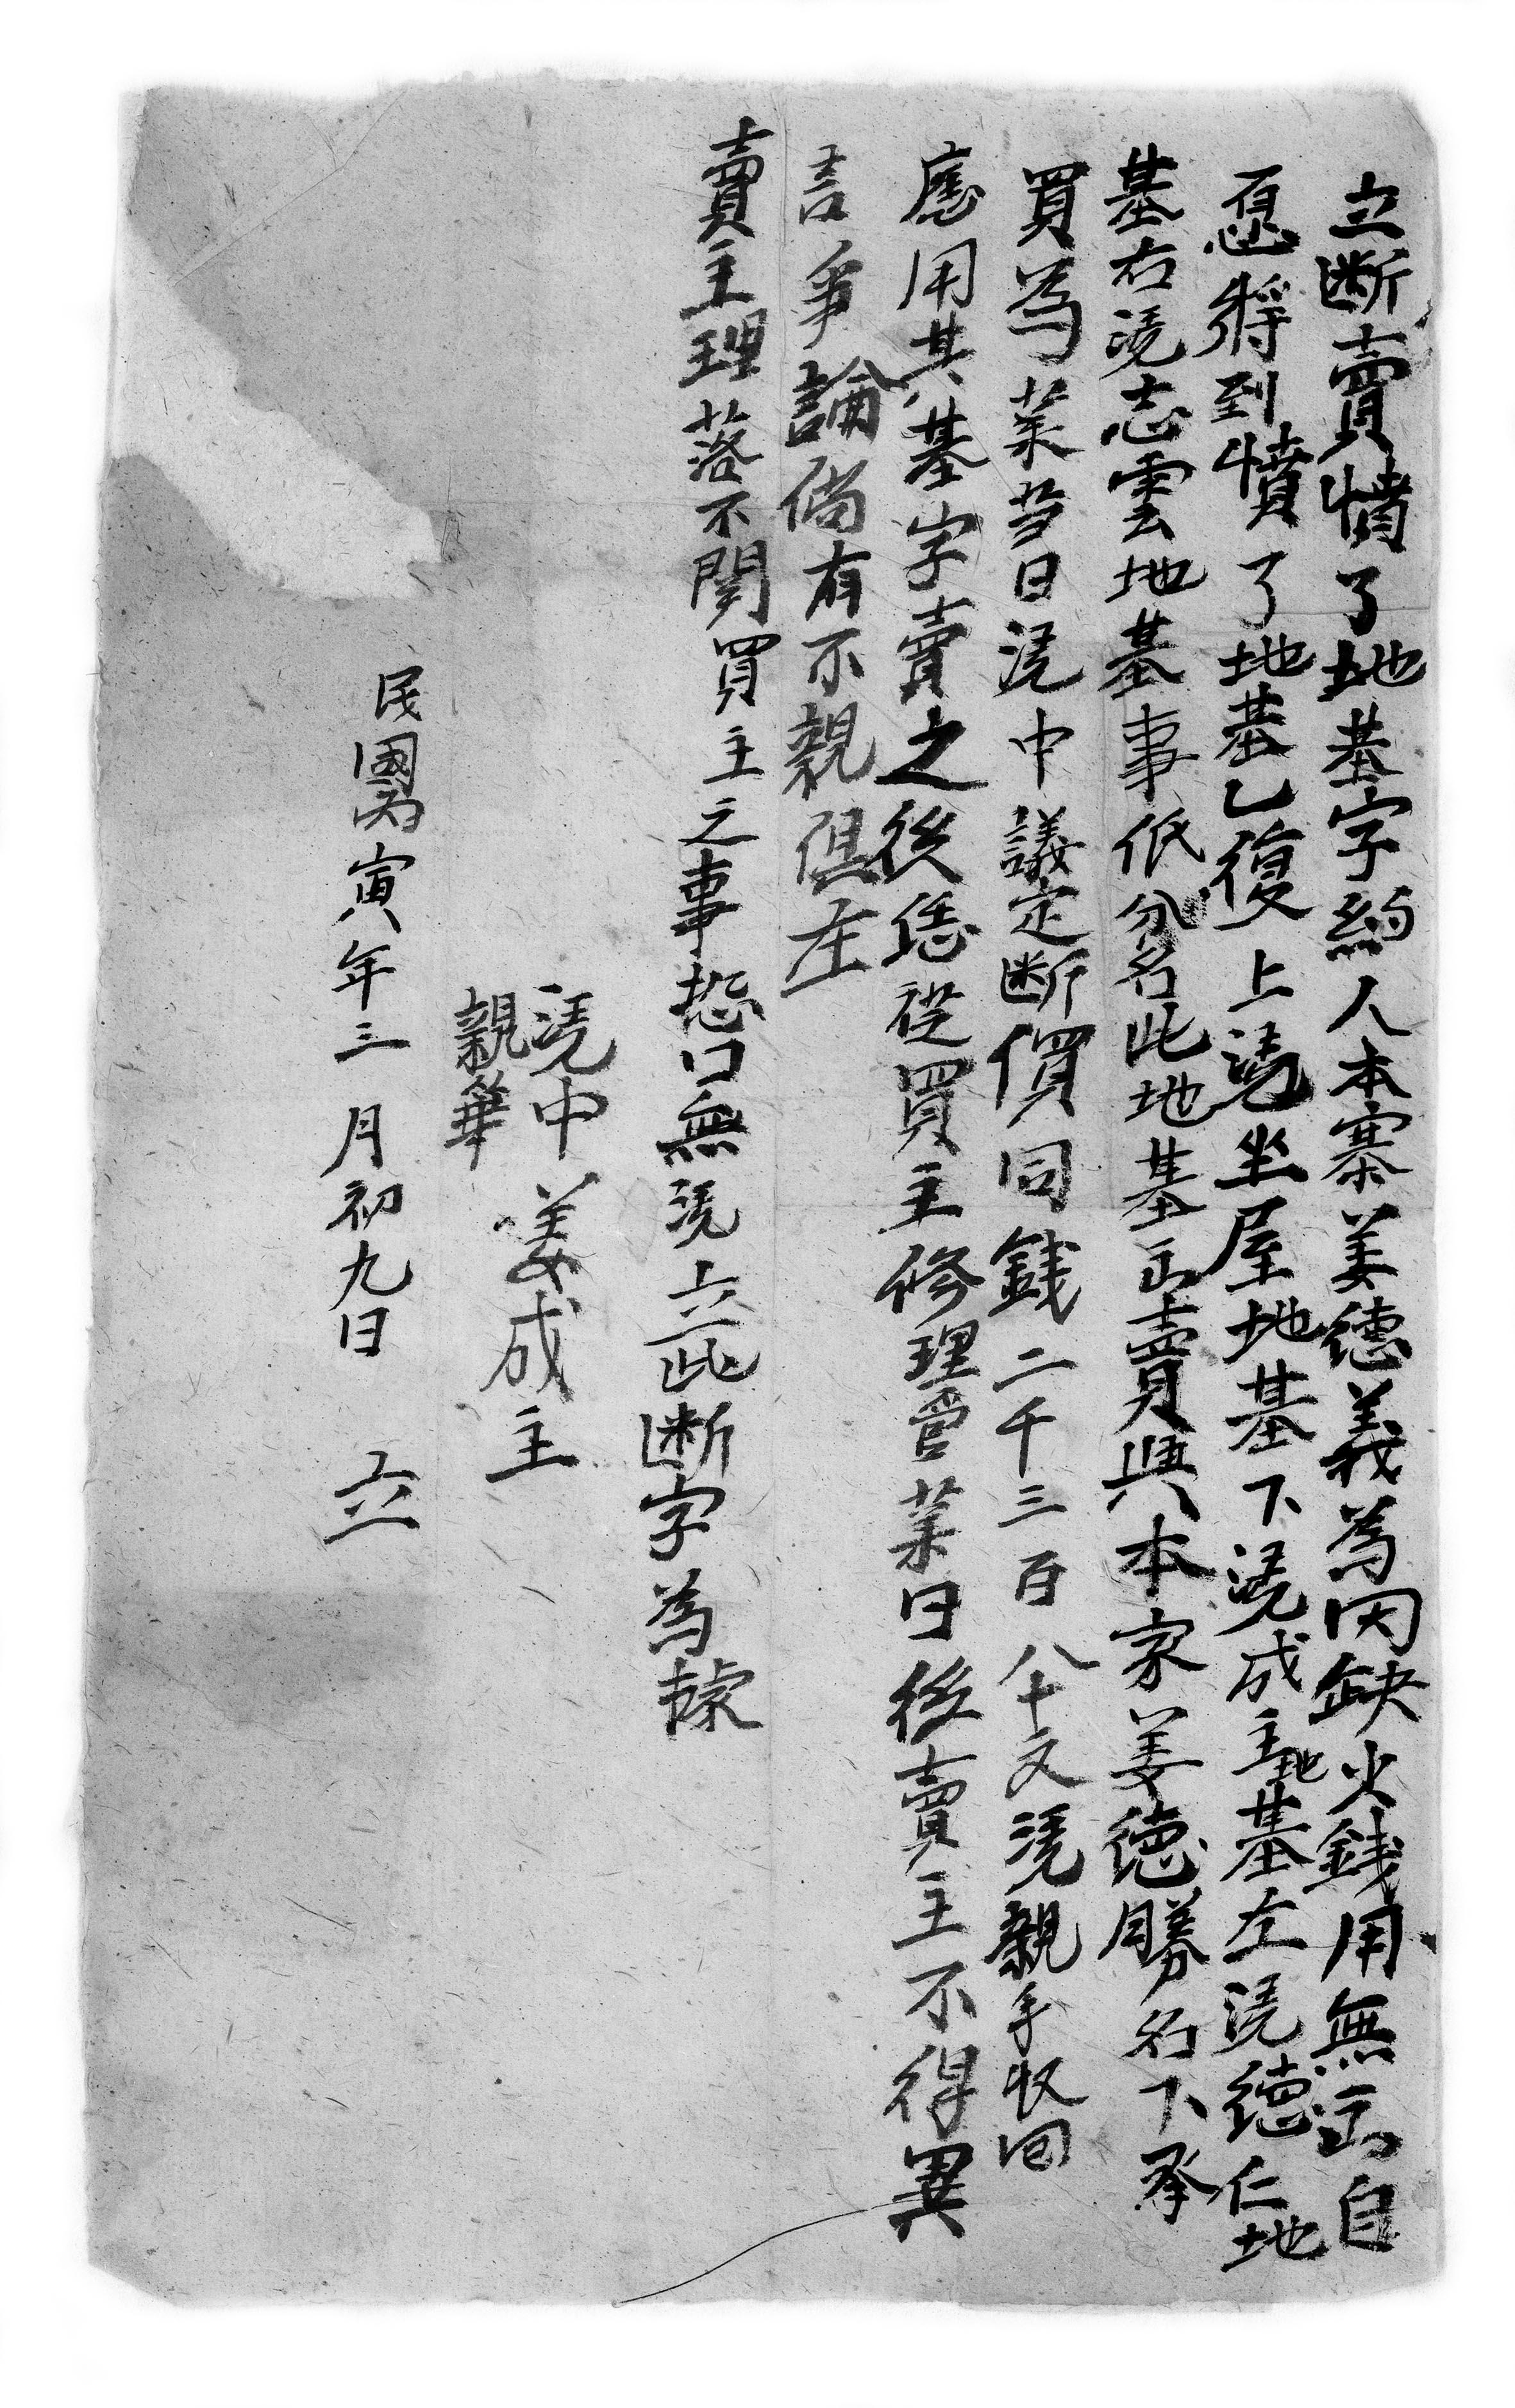 立断賣憤了地基字約人本寨姜德義為因缺少錢用無出自
愿將到憤了地基乙復上凴坐屋地基下凴成主地基左凴德仁地
基右凴志雲地基事低分名此地基出賣與本家姜德勝名下承
買為業當日凴中議定断價同錢二千三百八十文凴親手收回
應用其基字賣之後恁從買主修理管業日後賣主不得異
言爭論倘有不親俱在
賣主理落不関買主之事恐口無凴立此断字為據
凴中姜成主
親筆
民國丙寅年三月初九日立